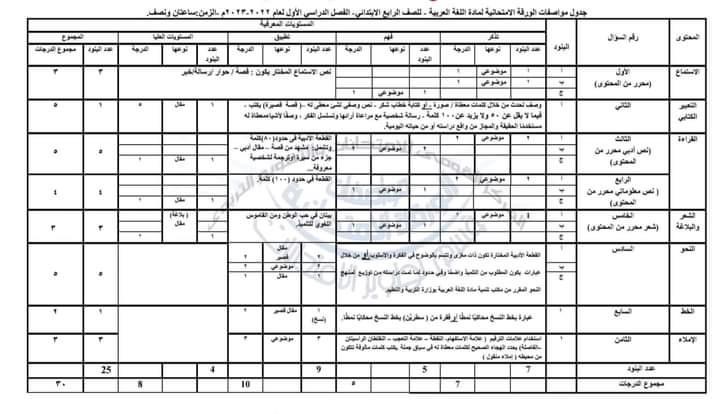 جدول مواصفات الورقة الامتحانية لمادة اللغة العربية - للصف الرابع الابتدائي- الفصل الدراسي الأول لعام ٢٠٢٢-٢٠٢٣م -الزمن:ساعتان ونصف.
المستويات المعرفية
المحتوى رقم السؤال البنود تذكر فهم تطبيق المستويات العليا عدد البنود مجموع الدرجات
عدد البنود نوعها الدرجة عدد البنود نوعها الدرجة عدد البنود نوعها الدرجة عدد البنود نوعها الدرجة
الاستماع الأول (محرر من المحتوى) أ ١ موضوعي ١ نص الاستماع المختار يكون : قصة / حوار /رسالة/خبر ٣ ٣
ب ١ موضوعي ١
ج ١ موضوعي ١
التعبير الكتابي الثاني أ وصف لحدث من خلال كلمات معطاة / صورة - أو كتابة خطاب شكر - نص وصفي لشئ معطى له – ( قصة قصيرة) يكتب - ١ مقال ٥ ١ ٥
فيما لا يقل عن ٥٠ ولا يزيد عن ١٠٠ كلمة - رسالة شخصية مع مراعاة آرائها وتسلسل الفكر ، وصفًا لأشياء معطاة له
مستخدمًا الحقيقة والمجاز من واقع دراسته أو من حياته اليومية.
القراءة الثالث (نص أدبي محرر من المحتوى) أ ٢ موضوعي ٢ القطعة الأدبية في حدود (٨٠) كلمة وتشمل: مشهد من قصة – مقال أدبي – جزء من سيرة أوترجمة لشخصية معروفة... ٥ ٥
ب ٢ موضوعي ٢
ج ١ مقال ١
الرابع ( نص معلوماتي محرر من المحتوى) القطعة في حدود (١٠٠) كلمة. ٤ ٤
ب موضوعي
ج مقال ١
الشعر والبلاغة الخامس (شعر محرر من المحتوى) أ موضوعي بيتان في حب الوطن ومن القاموس اللغوي للتلميذ. (بلاغة) مقال ٣ ٣
النحو السادس أ القطعة الأدبية المختارة تكون ذات مغزى وتتسم بالوضوح في الفكرة والأسلوب أو من خلال مقال قصير ٢ ٥ ٥
ب عبارات يكون المطلوب من التلميذ واضحًا وفي حدود لما تمت دراسته من توزيع المنهج ٢ موضوعي ٢
ج النحو المقرر من مكتب تنمية مادة اللغة العربية بوزارة التربية والتعليم. ١ مقال ١
الخط السابع أ عبارة بخط النسخ محاكيًا نمطًا أو فقرة من ( سطرين) بخط النسخ محاكيًا نمطًا. ١ (نسخ) مقال قصير ٢ ١ ٢
الإملاء الثامن أ استخدام علامات الترقيم ( علامة الاستفهام- النقطة – علامة التعجب – النقطتان الرأسيتان ٣ موضوعي ٣ ٣ ٣
-الفاصلة) يحدد الهجاء الصحيح لكلمات معطاة له في سياق جملة يكتب كلمات مألوفة تكون
من محيطه ( إملاء منقول )
عدد البنود 7 5 9 4 25
مجموع الدرجات 7 ٥ 10 8 ٣٠